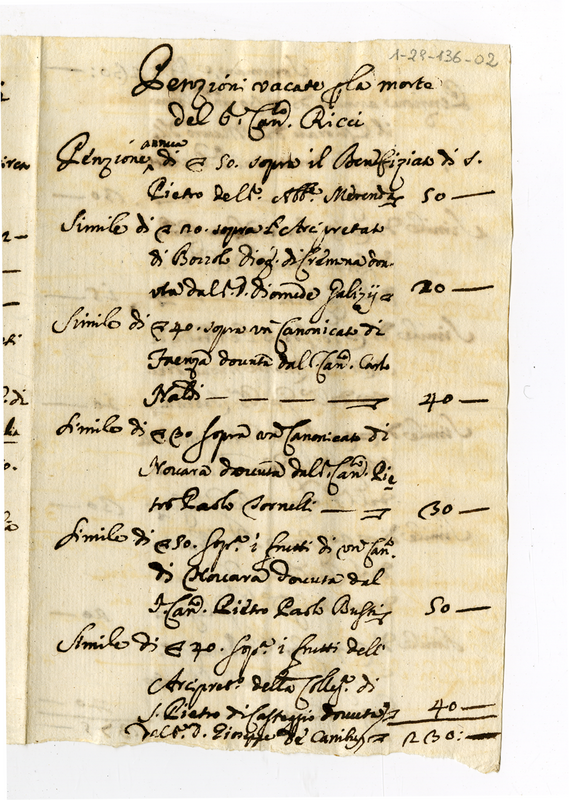 1-29-136-02
Penzioni vacate p la morte
del q. Can.co Ricci
Penzione annua di ∇ 50. sopra il Benefiziato di S.
Pietro del S.r Abb.e Merenda 50 —
Simile di ∇ 20. sopra l'Arcipretat
di Bozzolo Dioc. di Cremona dou-
uta dal S.r D. Diomede Galizij 20 —
Simile di ∇ 40. sopra un Canonicato di
Faenza douuta dal S. Can. Carlo
Naldi — — — — — 40 —
Simile di ∇ 30 sopra un Canonicato di
Nouara douuta dal S. Can.co Pie
tro Paolo Tornelli — — 30 —
Simile di ∇ 50. sop.a i frutti di un Can.to
di Nouara douuta dal
S. Can.co Pietro Paolo 50 —
Simile di ∇ 40. sop.a i frutti dell'
Arcipret.o della Colleg.a di
S. Pietro di Casteggio douuta 40 —
dal S.r D. Giuseppe de 230: —